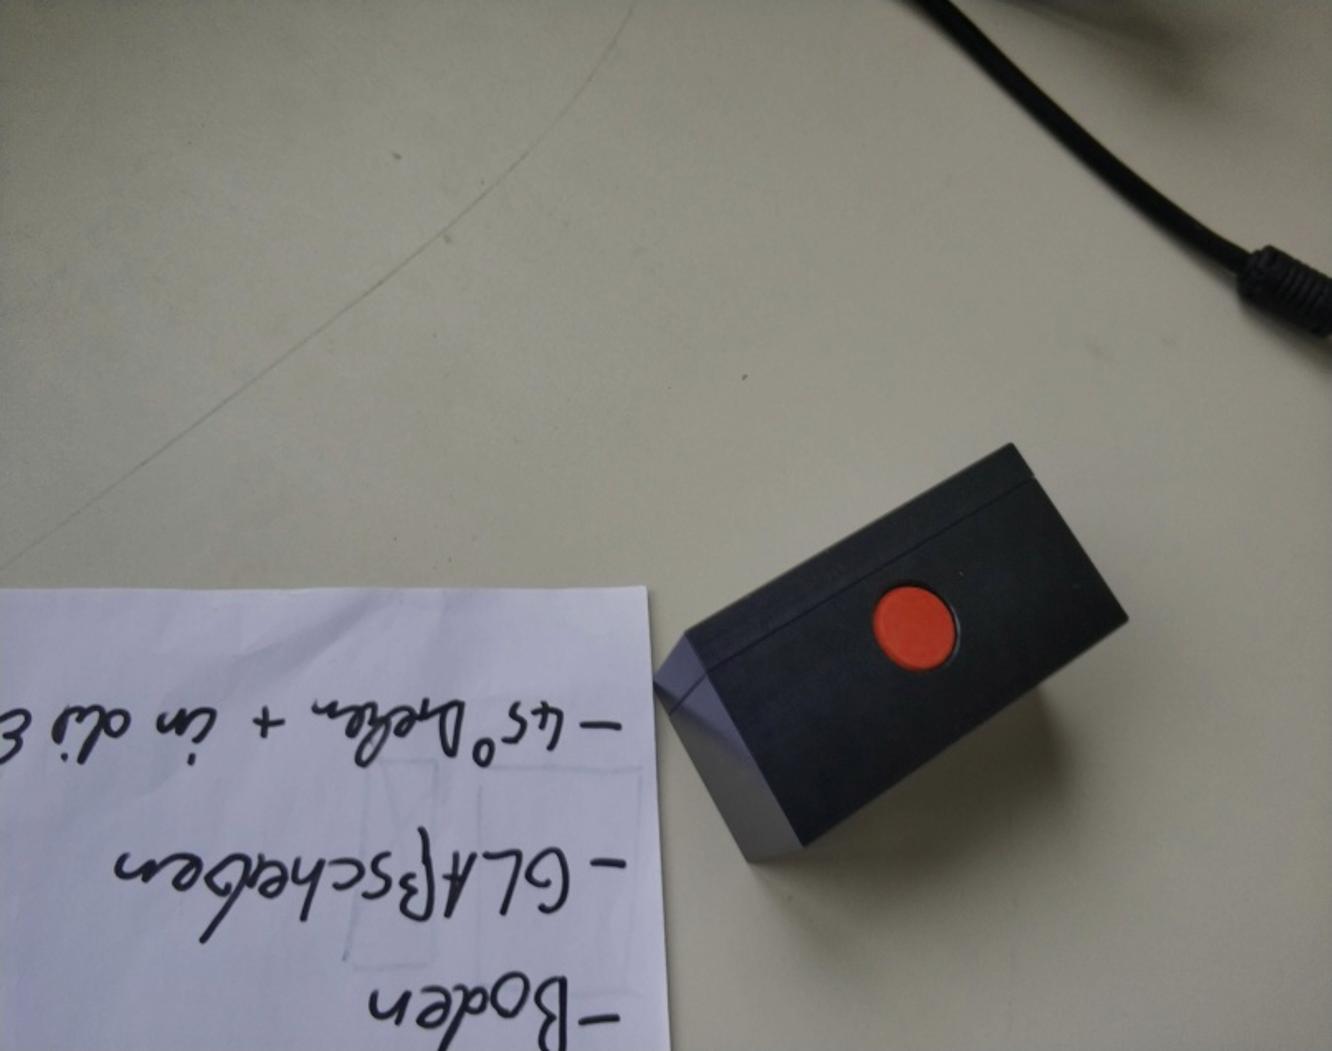 - Boden
- GLAßscheiben
- 45° Drehen + in die E